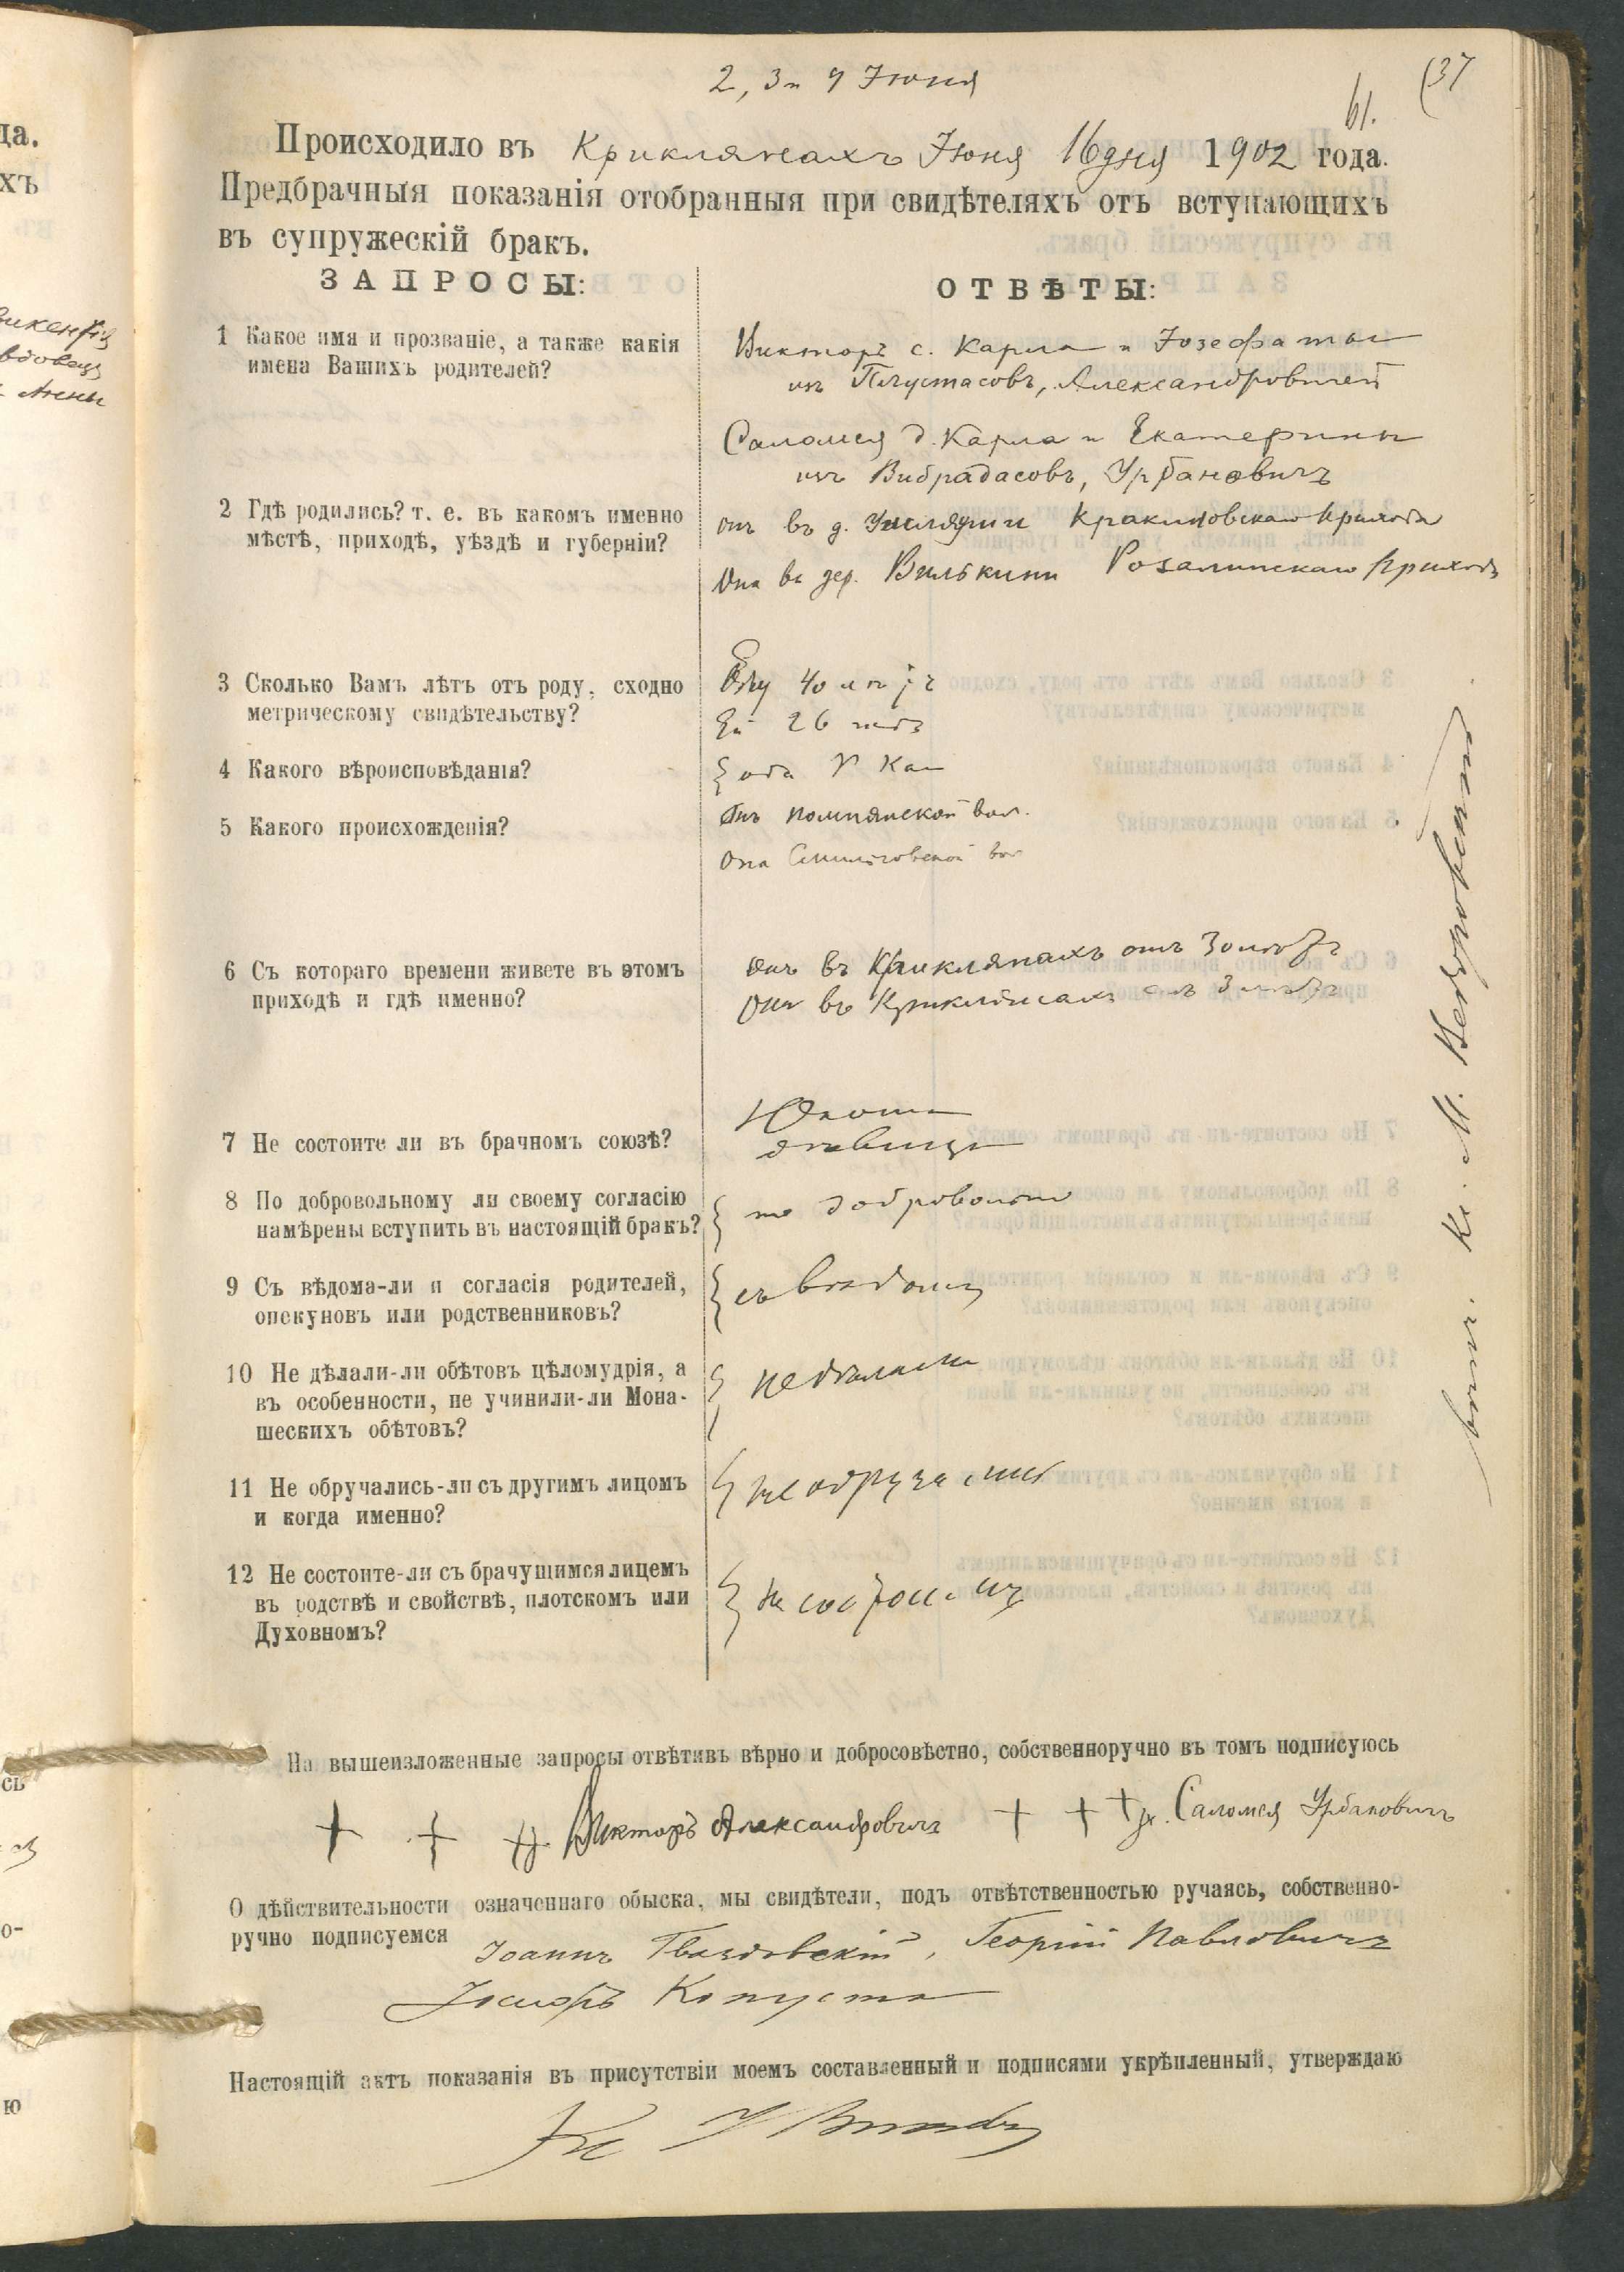 2, 3 и 9 Июня
(37
61.
Происходило въ Криклянахъ Іюня 16 дня 1902 года.
Предбрачныя показанія отобранныя при свидѣтеляхъ отъ вступающихъ
въ супружескій бракъ.
ЗАПРОСЫ:
ОТВѢТЫ:
1 Какое имя и прозваніе, а также какія
имена Вашихъ родителей?
Викторъ с. Карла и Іозефаты
изъ Плустасовъ, Александровичей
Саломея д. Карла и Екатерины
изъ Вибрадасовъ, Урбановичъ
2 Гдѣ родились? т. е. въ какомъ именно
мѣстѣ, приходѣ, уѣздѣ и губерніи?
онъ въ д. Кракиновскаго прихода
Она въ дер. Вилькини Розалинскаго прихода
3 Сколько Вамъ лѣтъ отъ роду, сходно
метрическому свидѣтельству?
Ему 40 лѣтъ
Ей 26 лѣтъ
4 Какого вѣроисповѣданія?
оба Р Кат
5 Какого происхожденія?
Онъ Помпянской вол.
она Смильговской вол
6 Съ котораго времени живете въ этомъ
приходѣ и гдѣ именно?
Онъ въ Криклянахъ отъ 3 лѣтъ
Она въ Криклянахъ отъ 3 лѣтъ
7 Не состоите ли въ брачномъ союзѣ?
Юноша
дѣвица
8 По добровольному ли своему согласію
намѣрены вступить въ настоящій бракъ?
по добровольно
9 Съ вѣдома-ли и согласія родителей,
опекуновъ или родственниковъ?
съ вѣдома
10 Не дѣлали-ли обѣтовъ цѣломудрія, а
въ особенности, не учинили-ли Мона-
шескихъ обѣтовъ?
не дѣлали
11 Не обручались-ли съ другимъ лицомъ
и когда именно?
не обручались
12 Не состоите-ли съ брачущимся лицемъ
въ родствѣ и свойствѣ, плотскомъ или
Духовномъ?
не состоимъ
На вышеизложенные запросы отвѣтивъ вѣрно и добросовѣстно, собственноручно въ томъ подписуюсь
+ + + Викторъ Александровичъ + + + Саломея Урбановичъ
О дѣйствительности означеннаго обыска, мы свидѣтели, подъ отвѣтственностью ручаясь, собственно-
ручно подписуемся
Іоаннъ Гвоздовскій, Георгій Павловичъ
Іосифъ Капуста
Настоящій актъ показанія въ присутствіи моемъ составленный и подписями укрѣпленный, утверждаю